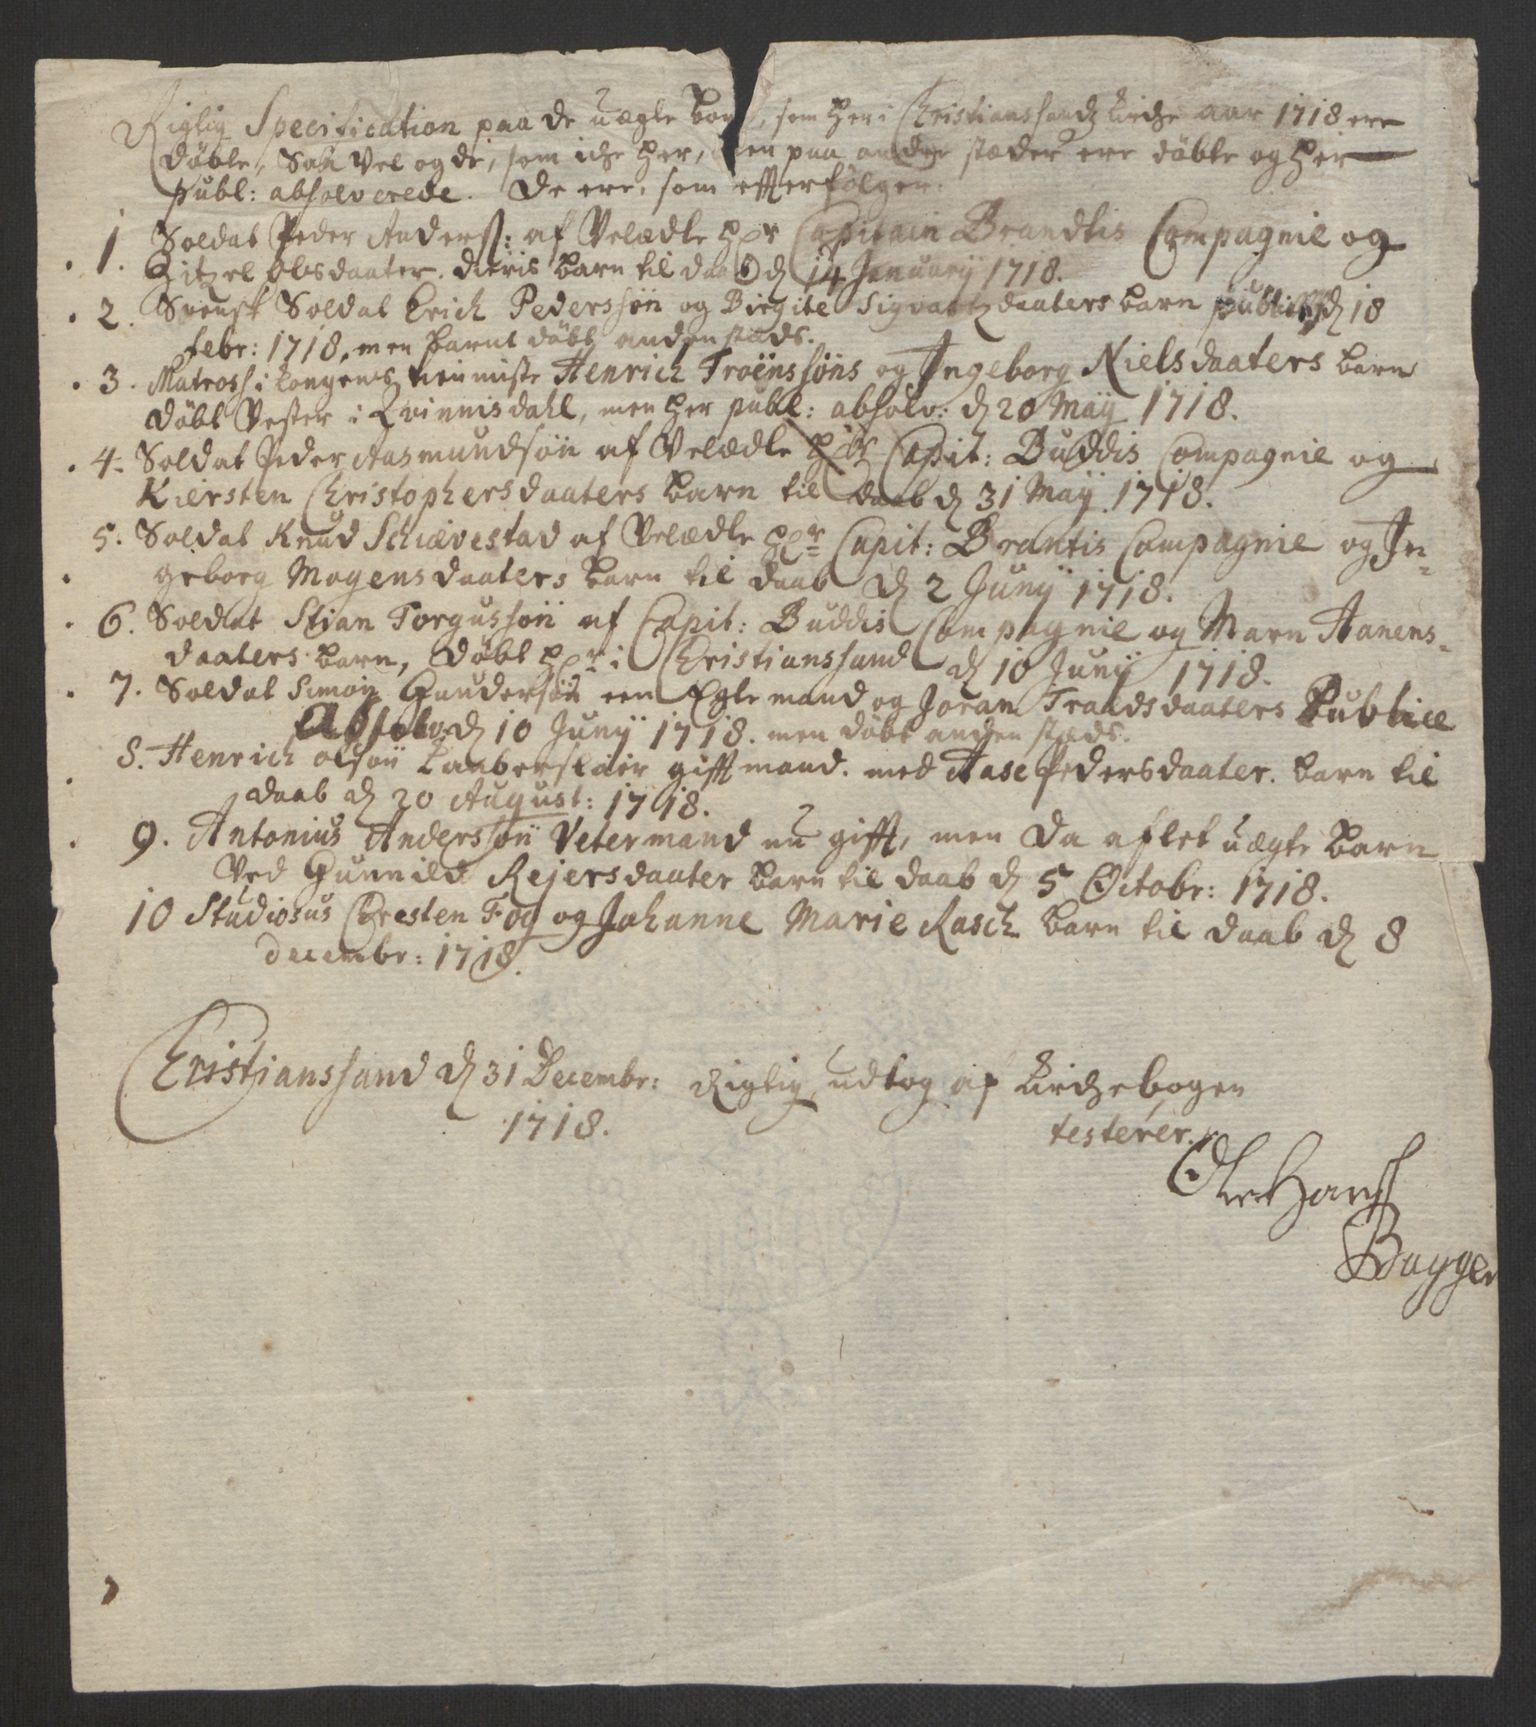 Rigtig Specification paa de uægte börn, som her i Christianssands kirche aar 1718 ere
döbte, Saa vel og de, som iche her, men paa andre stæder ere döbte og her
publ: absolverede. De ere, som effterfölger.
1. Soldat Peder Anderss: af Velædle Hr Capitain Brandtis Compagnie og
Zitzel Olsdaater. dieris barn til daab d 14 January 1718.
2. Svensk Soldat Erich Pederssøn og Birgite Sigvartzdaaters barn public d 18
febr: 1718, men barnet döbt andenstæds.
3. Matross i kongens tienniste Henrich Troënssøns og Ingeborg Nielsdaaters barn
döbt Vester i Qvinnisdahl, men her publ: absolv: d 20 Maÿ 1718.
4. Soldat Peder Aasmundsön af Velædle Hr Capit: Buddis Compagnie og
Kiersten Christophersdaaters barn til daab d 31 Maÿ 1718.
5. Soldat Knud Schiævestad af Velædle Hr Capit: Brantis Compagnie og In=
geborg Mogensdaaters barn til daab d 2 Junÿ 1718.
6. Soldat Stian Torgussøn af Capit: Buddis Compagnie og Marn Aanens=
daaters barn, döbt her i Christianssand d 10 Junÿ 1718.
7. Soldat Simon Gundersøn een Egte mand og Joran Traadsdaaters Publice
Absolv: d 10 Junÿ 1718. men döbt anden stæds.
8. Henrich olsøn Laaberslair gifft mand. med Aase Pedersdaater. barn til
daab d 20 August: 1718.
9. Antonius Anderssøn Vetermand nu gifft, men da aflet uægte barn
Ved Gunnild Rejersdaater barn til daab d 5 Octobr: 1718.
10 Studiosus Chresten Fog og Johanne Marie Rasch barn til daab d 8
decembr: 1718.
Christianssand d 31 Decembr: Rigtig udtog af kirchebogen
1718. testerer.
Ole Hanss
Bagger